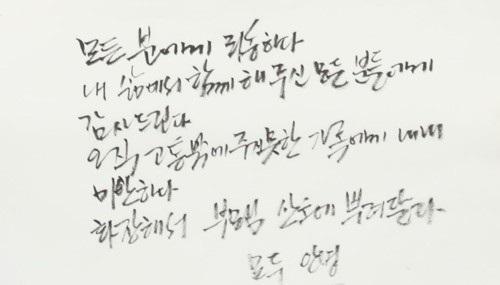 모든 분에게 죄송하다
내 삶에서 함께해 주신 모든 분들에게
감사드린다
오직 고통밖에 주지못한 가족에게 내내
미안하다
화장해서 부모님 산소에 뿌려달라
모두 안녕